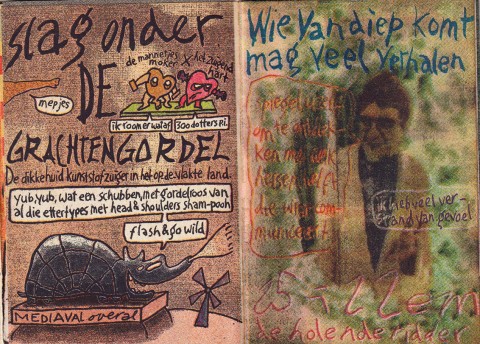 slag onder
de mannetjes
moker X het zugend
hart
DE
mepjes
ik room er wat af
300 dotters p.i.
GRACHTENGORDEL
De dikkehuid kunststofzuiger in het op de vlakte land.
yub, yub, wat een schubben, met gordelroos van
al die ettertypes met head & shoulders sham-pooh
flash & go wild
MEDIAVAL overal
Wie van diep komt
mag veel verhalen
spiegel
om te ontdek
ken met welk
hersenhelft
die
communiceert
ik heb veel ver-
stand van gevoel
Willem
de holende ridder